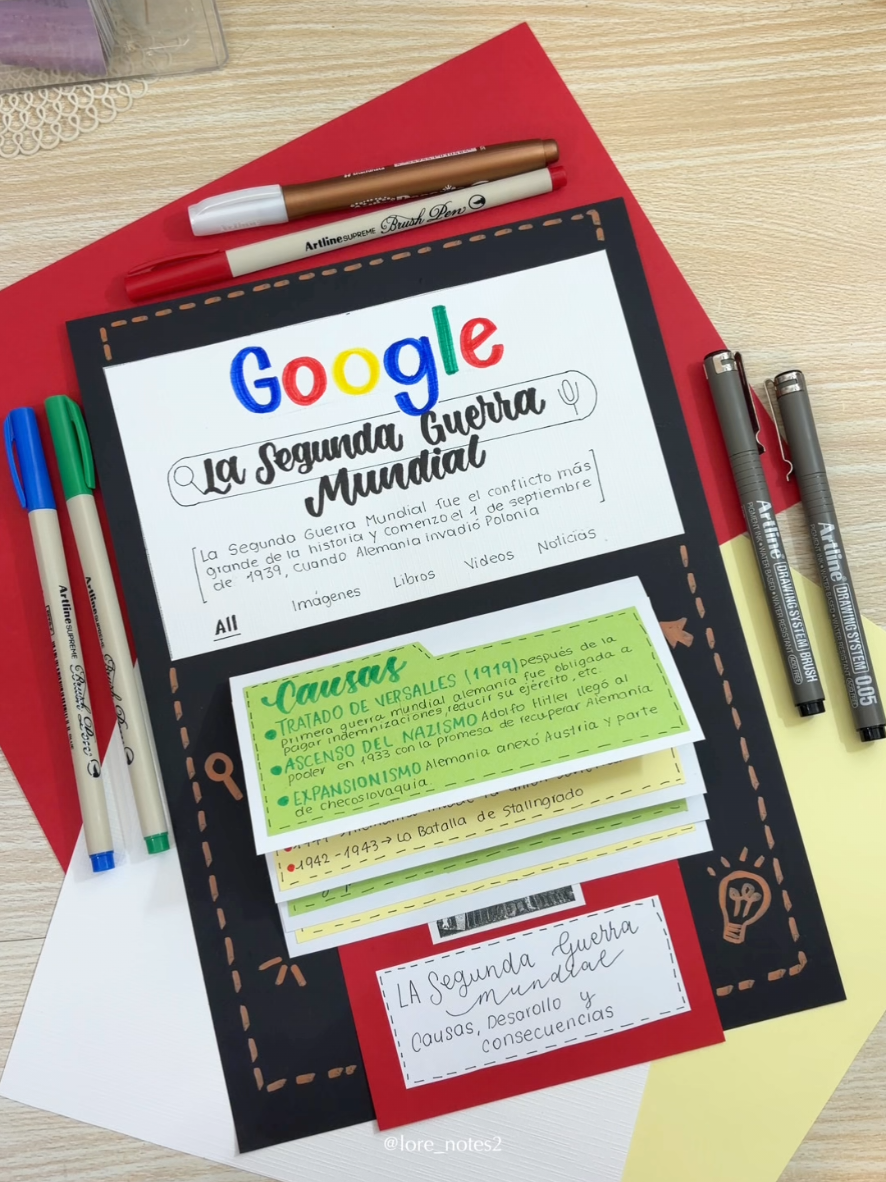 Artline SUPREME Brush Pen
Google
La Segunda Guerra
Mundial
[La Segunda Guerra Mundial fue el conflicto más
grande de la historia y comenzo el 1 de septiembre
de 1939, cuando Alemania invadió Polonia]
All Imágenes Libros Videos Noticias
Causas
• TRATADO DE VERSALLES (1919) Después de la
primera guerra mundial alemania fue obligada a
pagar indemnizaciones, reducir su ejército, etc.
• ASCENSO DEL NAZISMO Adolfo Hitler llegó al
poder en 1933 con la promesa de recuperar Alemania
• EXPANSIONISMO Alemania anexó Austria y parte
de checoslovaquia
• 1942-1943→ La Batalla de Stalingrado
LA Segunda Guerra
mundial
Causas, Desarollo y
consecuencias
Artline SUPREME
Brush Pen
Artline DRAWING SYSTEM BRUSH
PIGMENT INK • WATER BASED • WATER RESISTANT
Artline DRAWING SYSTEM 0.05
@lore_notes2